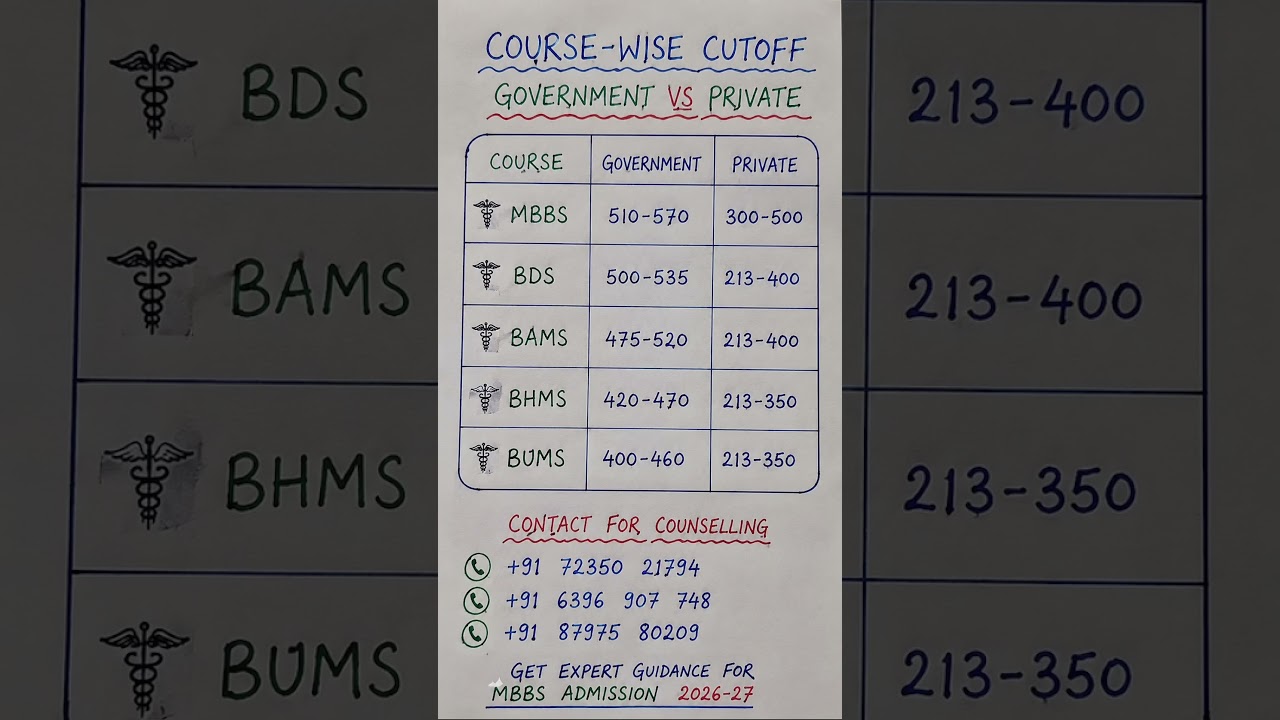 COURSE-WISE CUTOFF
GOVERNMENT VS PRIVATE
COURSE GOVERNMENT PRIVATE
MBBS 510-570 300-500
BDS 500-535 213-400
BAMS 475-520 213-400
BHMS 420-470 213-350
BUMS 400-460 213-350
CONTACT FOR COUNSELLING
+91 72350 21794
+91 6396 907 748
+91 87975 80209
GET EXPERT GUIDANCE FOR
MBBS ADMISSION 2026-27
BDS 213-400
BAMS 213-400
BHMS 213-350
BUMS 213-350